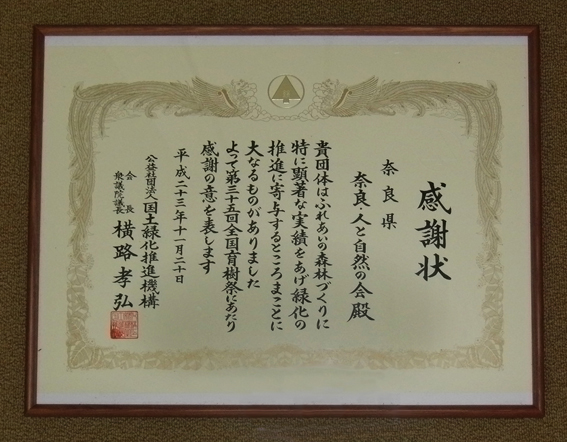 感謝状
奈良県
奈良・人と自然の会殿
貴団体はふれあいの森林づくりに
特に顕著な実績をあげ緑化の
推進に寄与するところまことに
大なるものがありました
よって第三十五回全国育樹祭にあたり
感謝の意を表します
平成二十三年十一月二十日
公益社団法人国土緑化推進機構
会長
衆議院議長
横路孝弘